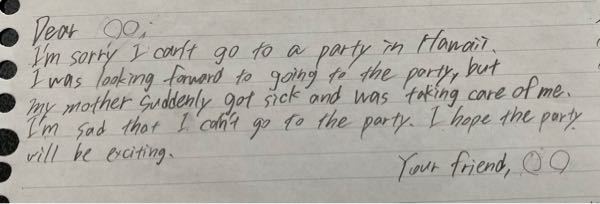 Dear ○○,
I'm sorry I can't go to a party in Hawaii.
I was looking forward to going to the party, but
my mother suddenly got sick and was taking care of me.
I'm sad that I can't go to the party. I hope the party
will be exciting.
Your friend, ○○